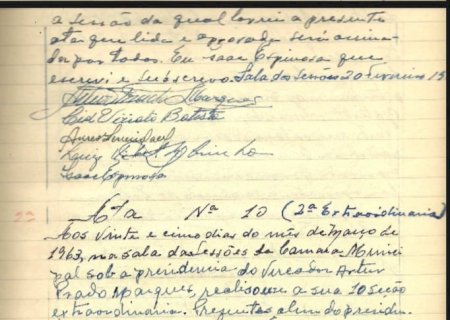 a sessão da qual lavrei a presente
ata que lida e aprovada será assina-
da por todos. Eu Isaac Espinosa que
escrevi e subscrevo. Sala das Sessões 20 fevereiro 19
Marques
Cid Vizioto Batista
Isaac Espinosa
22 Ata Nº 10 (2ª Extraordinaria)
Aos vinte e cinco dias do mês de Março de
1963, na sala das sessões da Camara Munici
pal sob a presidencia do Vereador Artur
Prado Marques, realisou-se a sua 10 seção
extraordinaria. Presentes alem do preside-